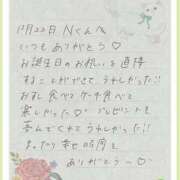 12月22日 Nくんへ
いつもありがとう♡
お誕生日のお祝いを直接
することができてうれしかった!!
おすし食べてケーキ食べて
楽しかった♡プレゼントも
喜んでくれてうれしかった!!
まったり幸せ時間を
ありがとう〜♡